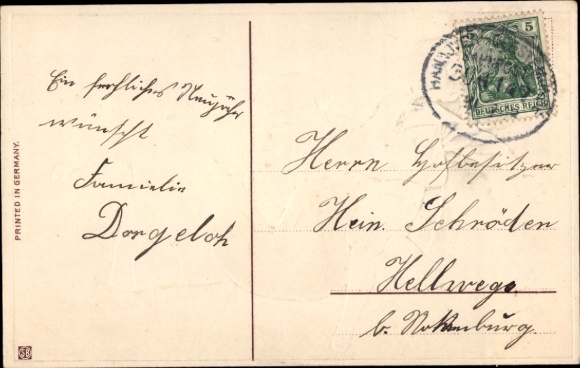 Ein frohliches Neujahr
wünscht
Familie
Dorgeloh
PRINTED IN GERMANY.
SB
5
DEUTSCHES REICH
Herrn Hofbesitzer
Hein. Schröder
Hellwege
b. Rotenburg.